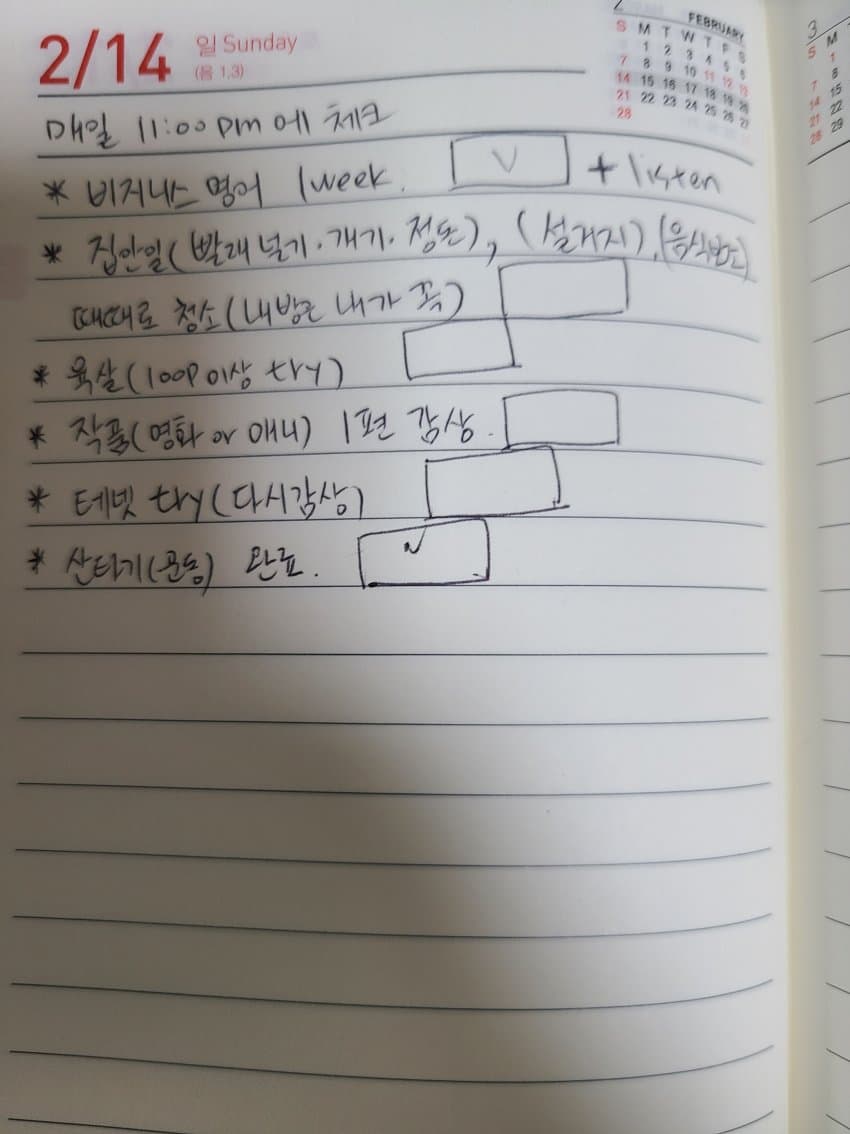 2/14 일 Sunday
(음 1.3)
2 FEBRUARY
S M T W T F S
1 2 3 4 5 6
7 8 9 10 11 12 13
14 15 16 17 18 19 20
21 22 23 24 25 26 27
28
3
S M
1
7 8
14 15
21 22
28 29
매일 11:00 pm 에 체크
* 비지니스 영어 1week. V + listen
* 집안일(빨래 널기·개기·정돈), (설거지),
때때로 청소(내방은 내가 꼭)
* 욕살(100P이상 try)
* 작품(영화 or 애니) 1편 감상.
* 테넷 try(다시감상)
* 산타기(운동) 완료. V